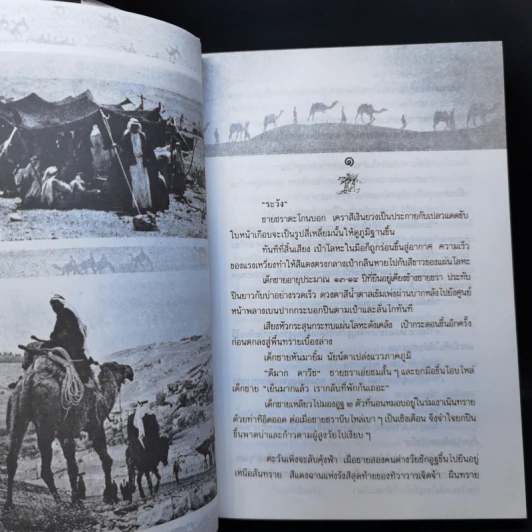 ๑
"ระวัง"
ชายชราตะโกนบอก เคราสีเงินยวงเป็นประกายกับเปลวแดดขับ
ใบหน้าเกือบจะเป็นรูปสี่เหลี่ยมนั้นให้ดูภูมิฐานขึ้น
ทันทีที่สิ้นเสียง เป้าโลหะในมือก็ถูกร่อนขึ้นสู่อากาศ ความเร็ว
ของแรงเหวี่ยงทำให้สีแดงตรงกลางเป้ากลืนหายไปกับสีขาวของแผ่นโลหะ
เด็กชายอายุประมาณ ๑๓-๑๔ ปีที่ยืนอยู่เคียงข้างชายชรา ประทับ
ปืนยาวกับบ่าอย่างรวดเร็ว ดวงตาสีน้ำตาลเข้มเพ่งผ่านบากหลังไปยังศูนย์
หน้าพลางเบนปากกระบอกปืนตามเป้าและลั่นไกทันที
เสียงหัวกระสุนกระทบแผ่นโลหะดังแก๊ง เป้ากระดอนขึ้นอีกครั้ง
ก่อนตกลงสู่พื้นทรายเบื้องล่าง
เด็กชายหันมายิ้ม นัยน์ตาเปล่งแววภาคภูมิ
"ดีมาก ดาวิช" ชายชราเอ่ยชมสั้นๆ และยกมือขึ้นโอบไหล่
เด็กชาย "เย็นมากแล้ว เรากลับที่พักกันเถอะ"
เด็กชายเหลียวไปมองอูฐ ๒ ตัวที่นอนหมอบอยู่ในร่มเงาเนินทราย
ด้วยท่าทีอิดออด ต่อเมื่อชายชราบีบไหล่เบาๆ เป็นเชิงเตือน จึงจำใจยกปืน
ขึ้นพาดบ่าและก้าวตามผู้สูงวัยไปเงียบๆ
ตะวันเพิ่งจะลับคุ้งฟ้า เมื่อชายสองคนต่างวัยชักอูฐขึ้นไปยืนอยู่
เหนือสันทราย สีแดงฉานแห่งรังสีสุดท้ายของทิวาวารเจิดจ้า ผืนทราย